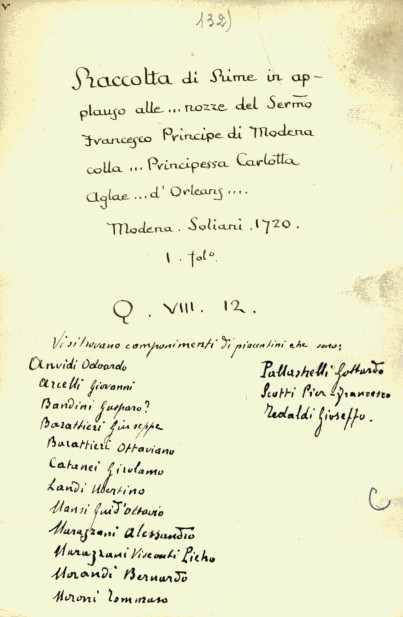 132)
Raccolta di Rime in ap-
plauso alle ... nozze del Sermo
Francesco Principe di Modena
colla ... Principessa Carlotta
Aglae ... d'Orleans ....
Modena. Soliani. 1720.
1. folo.
Q. VIII. 12.
Vi si trovano componimenti di piacentini che sono;
Anvidi Odoardo
Arcelli Giovanni
Bandini Gasparo?
Barattieri Giuseppe
Barattieri Ottaviano
Catanei Girolamo
Landi Ubertino
Mansi Guid'Ottavio
Marazzani Alessandro
Marazzani Visconti Pietro
Morandi Bernardo
Moroni Tommaso
Pallastrelli Gottardo
Scotti Pier-Francesco
Tedaldi Gioseffo.